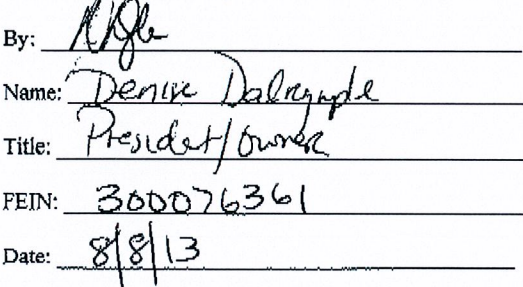 By:
Name: Denise Dalrymple
Title: President/Owner
FEIN: 300076361
Date: 8/8/13